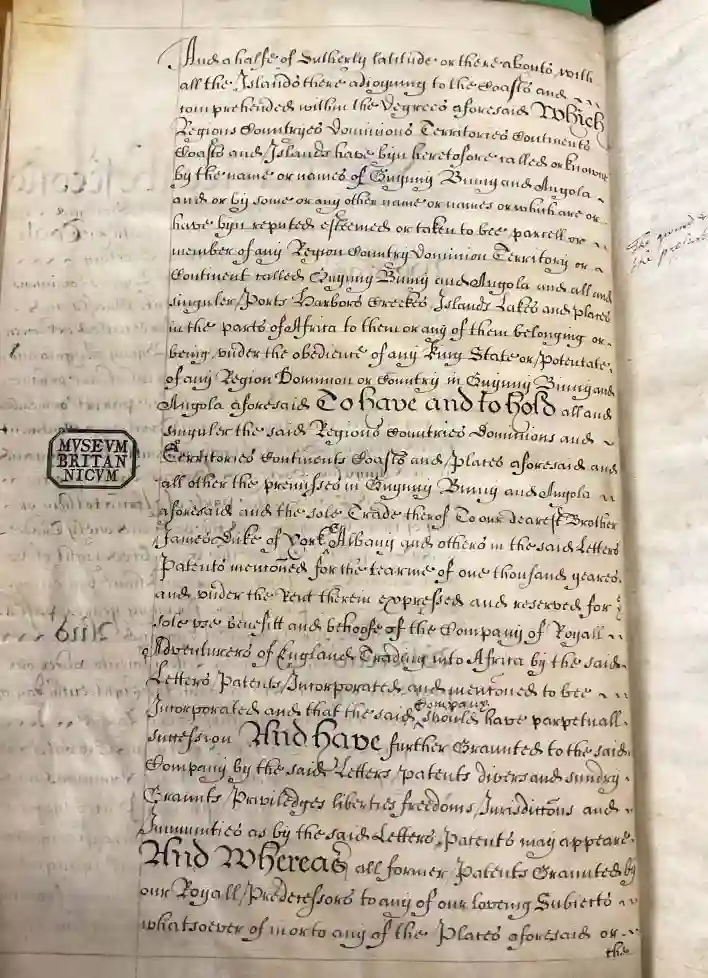 And a halfe of Sutherly latitude or there abouts with
all the Islands there adioyning to the Coasts and
comprehended within the degrees aforesaid Which
Regions Countryes Dominions Territories Continents
Coasts and Islands have byn heretofore called or knowne
by the name or names of Guynny Binny and Angola
and or by some or any other name or names or which are or
have byn reputed esteemed or taken to bee parcell or
member of any Region Country Dominion Territory or
Continent called Guynny Binny and Angola and all and
singuler Ports Harbors Creekes Islands Lakes and places
in the parts of Africa to them or any of them belonging or
being under the obedience of any King State or Potentate
of any Region Dominion or Country in Guynny Binny and
Angola aforesaid To have and to hold all and
singuler the said Regions Countries Dominions and
Territories Continents Coasts and Places aforesaid and
all other the premisses in Guynny Binny and Angola
aforesaid and the sole Trade therof To our dearest Brother
James Duke of York & Albany and others in the said Letters
Patents mentioned for the tearme of one thousand yeares
and under the Rent therein expressed and reserved for
sole use benefitt and behoofe of the Company of Royall
Adventurers of England Trading into Africa by the said
Letters Patents Incorporated and mentoned to bee
Incorporated and that the said Company should have perpetuall
succession And have further Graunted to the said
Company by the said Letters patents divers and sundry
Graunts Priviledges liberties freedoms Jurisdictons and
Immunities as by the said Letters Patents may appeare
And Whereas all former Patents Graunted by
our Royall Predecessors to any of our loveing Subiects
whatsoever of in or to any of the Places aforesaid or
the
MVSEVM
BRITAN
NICVM